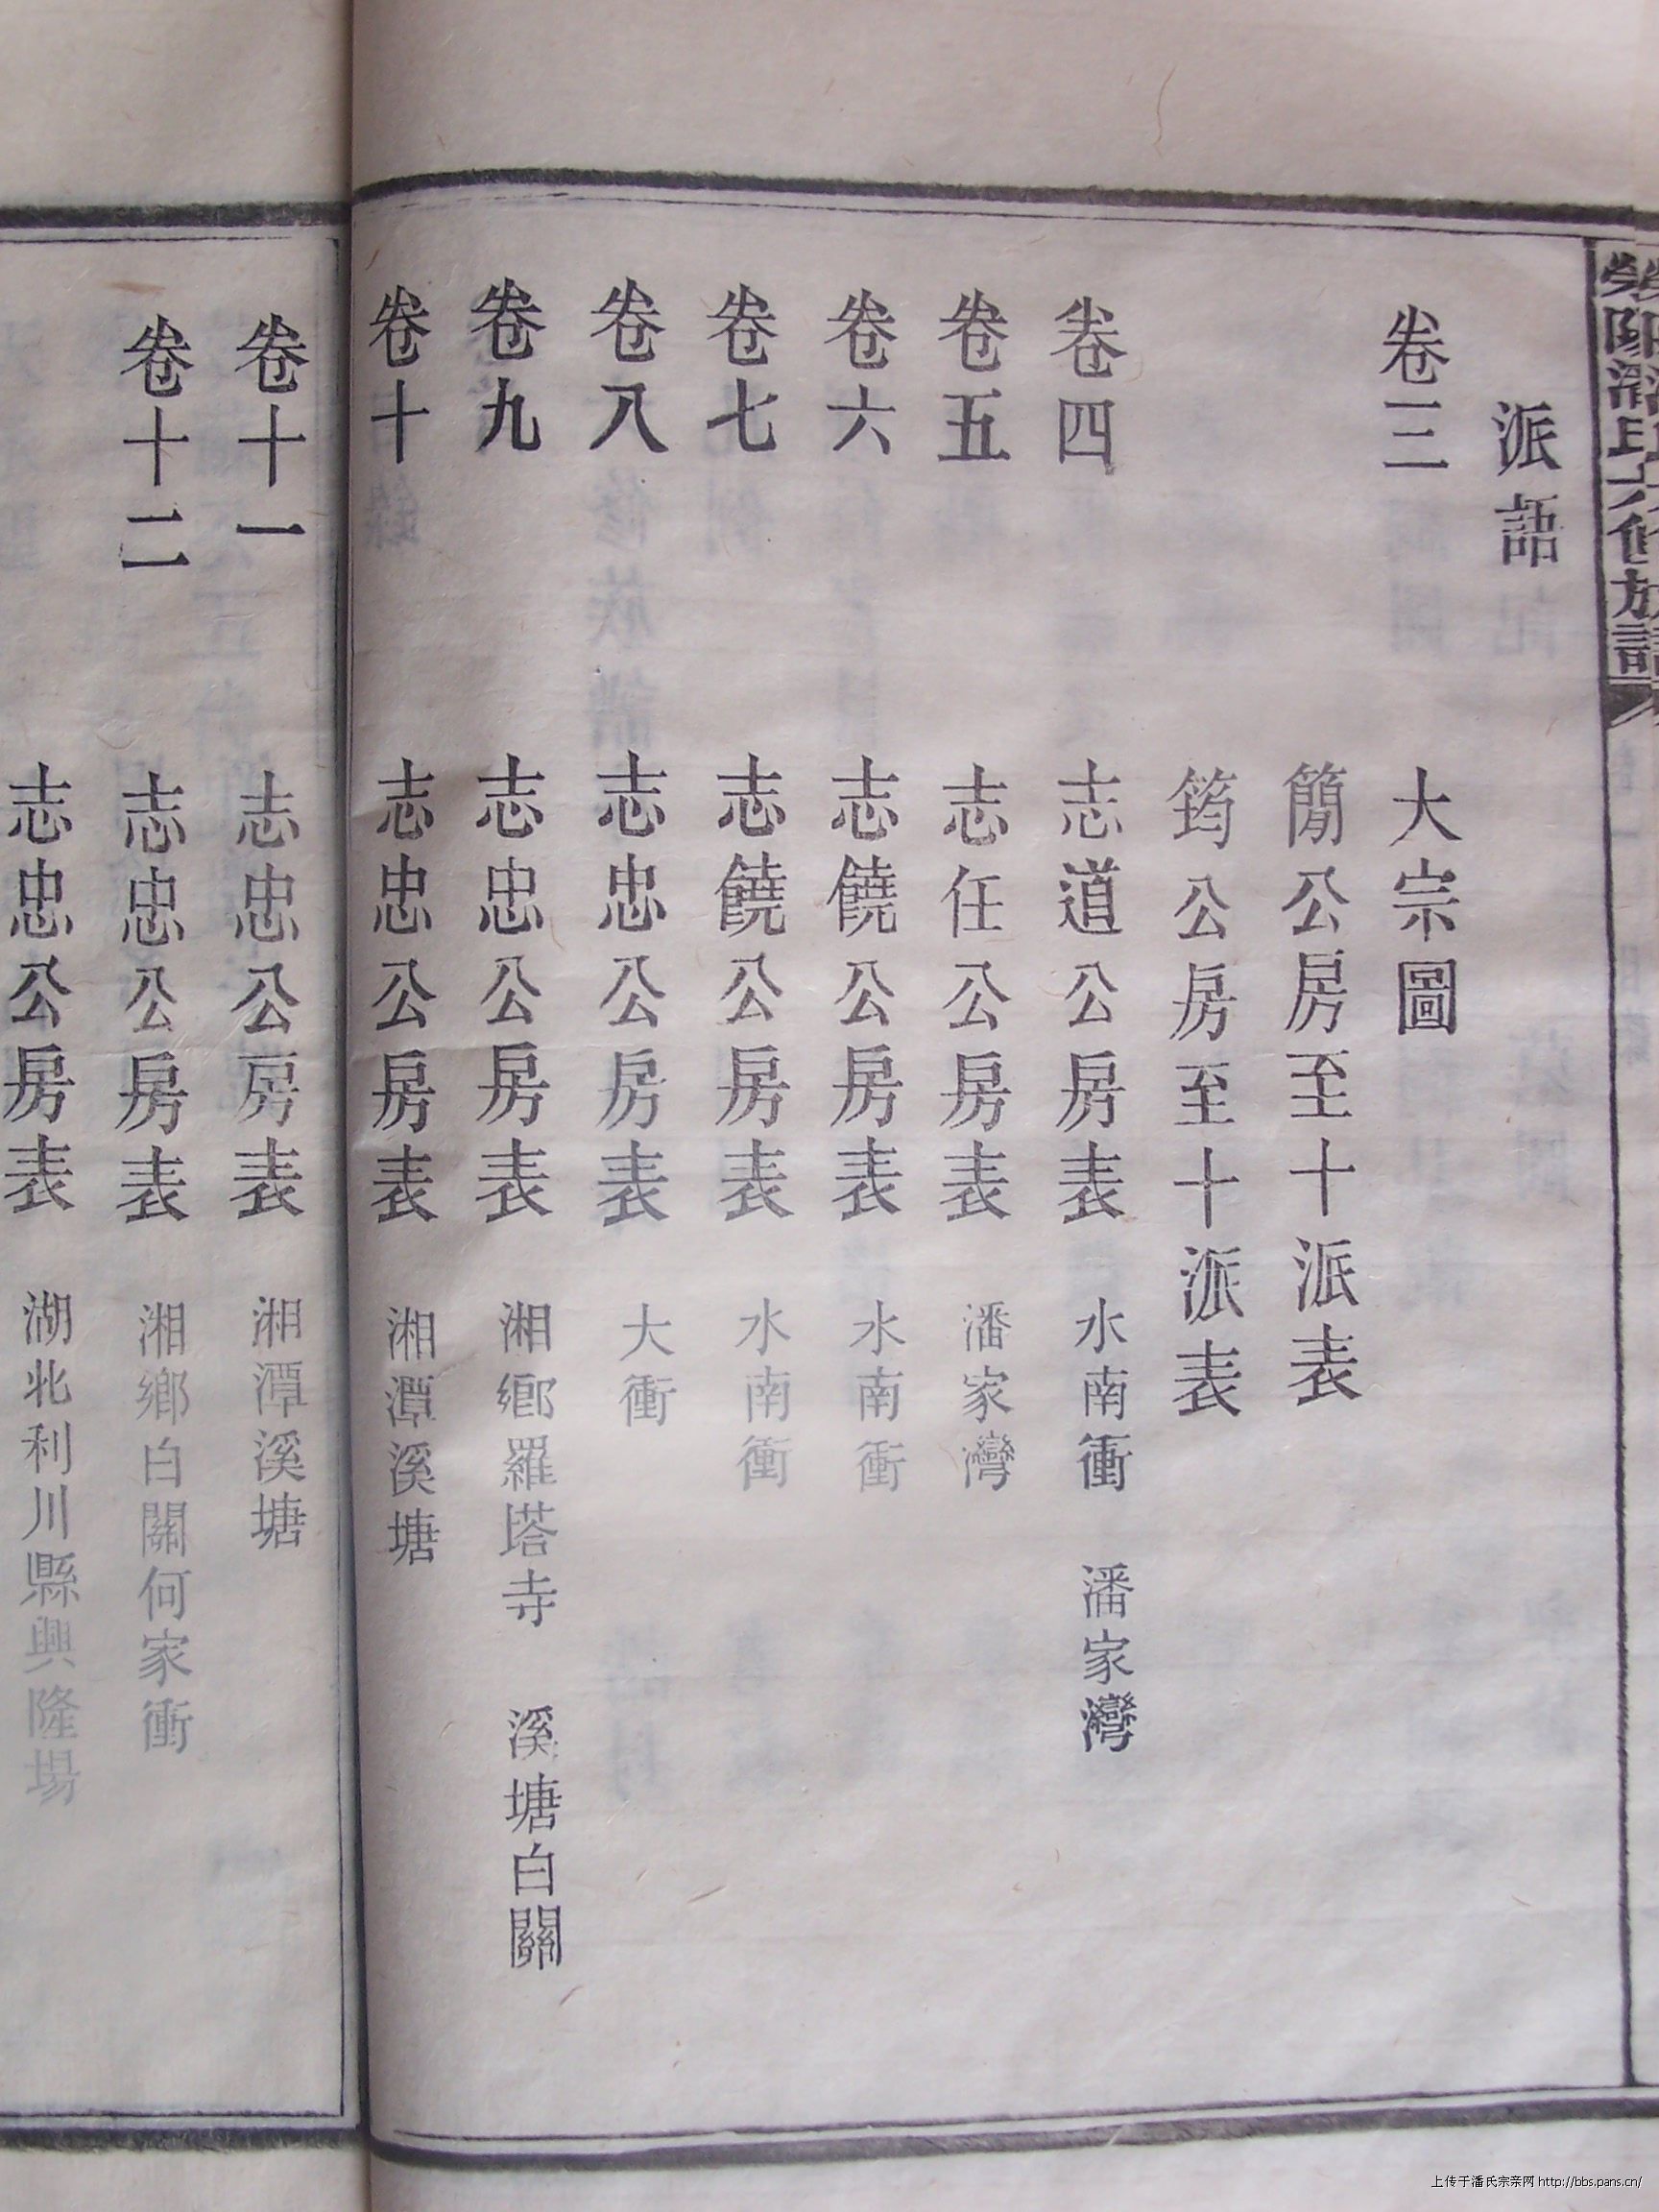 派語
卷三 大宗圖
簡公房至十派表
筠公房至十派表
卷四 志道公房表 水南衝 潘家灣
卷五 志任公房表 潘家灣
卷六 志饒公房表 水南衝
卷七 志饒公房表 水南衝
卷八 志忠公房表 大衝
卷九 志忠公房表 湘鄉羅塔寺 溪塘白關
卷十 志忠公房表 湘潭溪塘
卷十一 志忠公房表 湘潭溪塘
卷十二 志忠公房表 湘鄉白關何家衝
志忠公房表 湖北利川縣興隆場
上传于潘氏宗亲网 http://bbs.pans.cn/